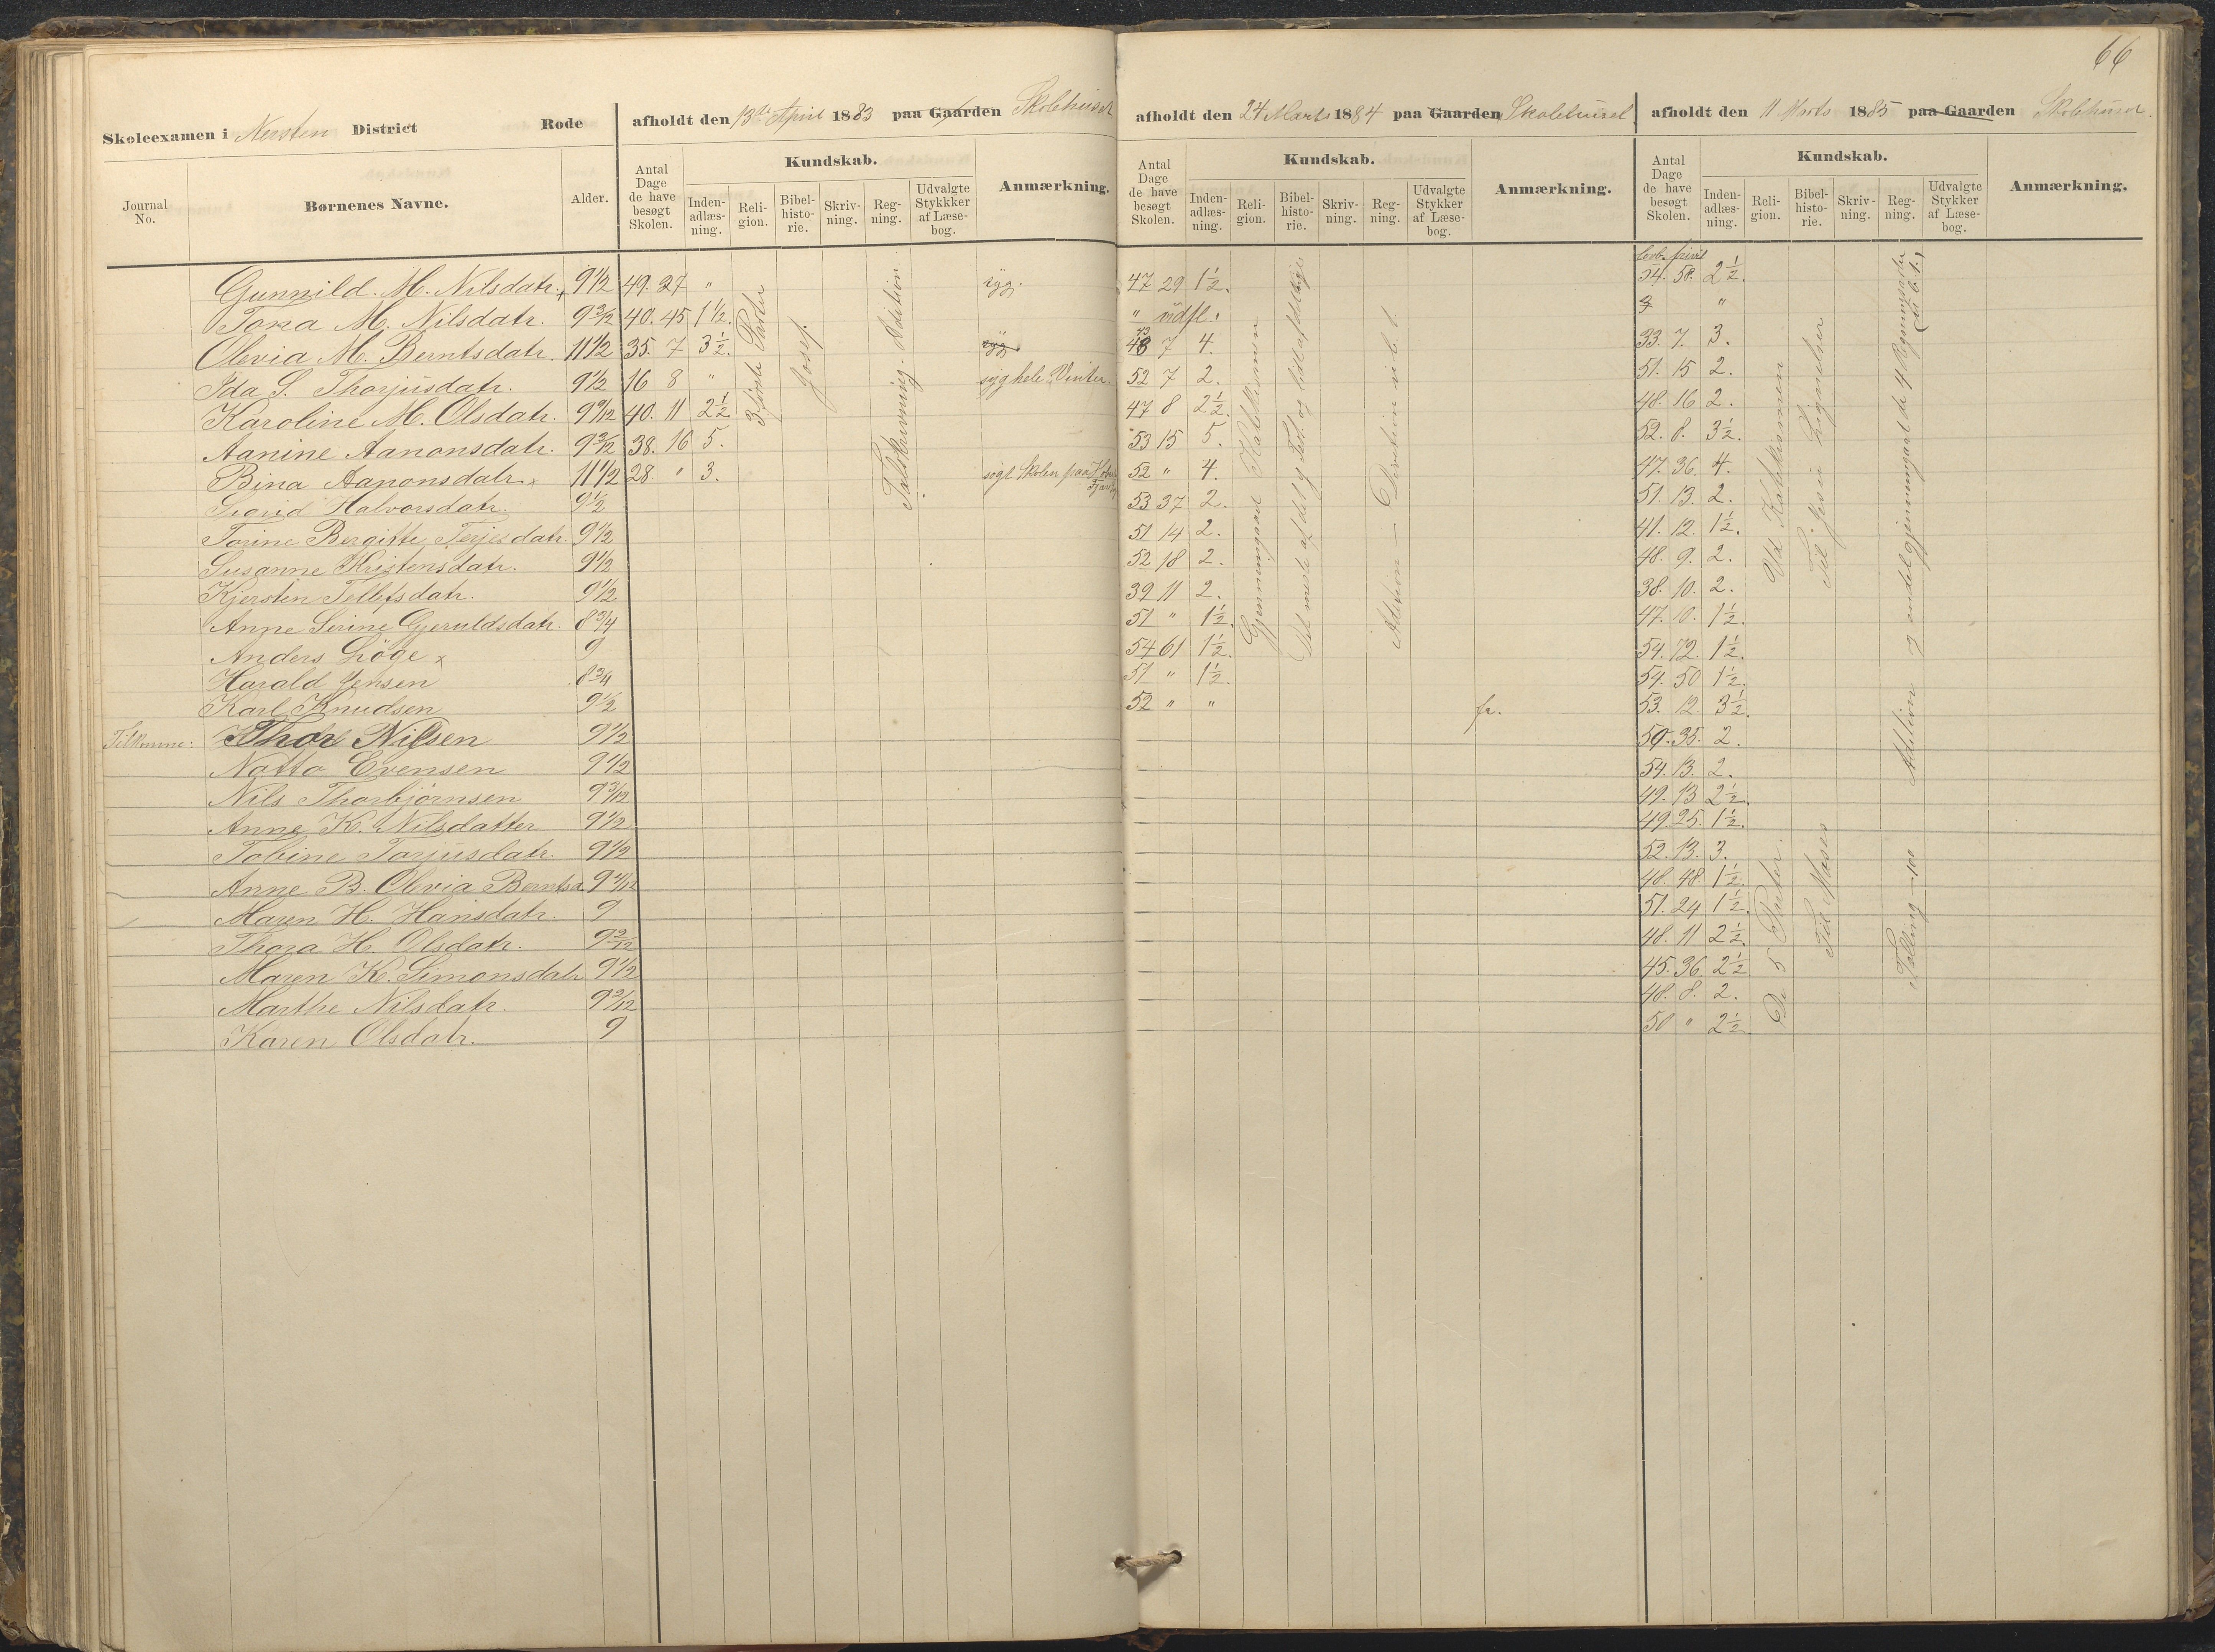 66
Skoleexamen i Nersten District Rode afholdt den 13de April 1883 paa Gaarden Skolehuset
afholdt den 24 Marts 1884 paa Gaarden Skolehuset
afholdt den 11 Marts 1885 paa Gaarden Skolehuset.
Journal No. Børnenes Navne. Alder. Antal Dage de have besøgt Skolen. Kundskab. Inden- adlæs- ning. Reli- gion. Bibel- histo- rie. Skriv- ning. Reg- ning. Udvalgte Stykkker af Læse- bog. Anmærkning.
Antal Dage de have besøgt Skolen. Kundskab. Inden- adlæs- ning. Reli- gion. Bibel- histo- rie. Skriv- ning. Reg- ning. Udvalgte Stykker af Læse- bog. Anmærkning.
Antal Dage de have besøgt Skolen. Kundskab. Inden- adlæs- ning. Reli- gion. Bibel- histo- rie. Skriv- ning. Reg- ning. Udvalgte Stykker af Læse- bog. Anmærkning.
Gunnild. M. Nilsdatr. 9 1/2 49. 27 " syg. 47 29 1 1/2. 54. 58. 2 1/2.
Tora M. Nilsdatr. 9 3/12 40. 45 1 1/2. " udfl. "
Olevia M. Berntsdatr. 11 1/2 35. 7 3 1/2. syg 48 7 4. 33. 7. 3.
Ida S. Thorjusdatr. 9 1/2 16 8 " syg hele Vinter. 52 7 2. 51. 15 2.
Karoline M. Olsdatr. 9 9/12 40. 11 2 1/2. 47 8 2 1/2. 48. 16 2.
Aanine Aanonsdatr. 9 3/12 38. 16 5. 53 15 5. 52. 8. 3 1/2.
Bina Aanonsdatr. x 11 1/2 28 " 3. søgt Skolen paa 52 " 4. 47. 36. 4.
Halvorsdatr. 9 1/2 53 37 2. 51. 13. 2.
Torine Bergitte Terjesdatr. 9 1/2 51 14 2. 41. 12. 1 1/2.
Susanne Kristensdatr. 9 1/2 52 18 2. 48. 9. 2.
Kjersten Tellefsdatr. 9 1/2 39 11 2. 38. 10. 2.
Anne Serine Gjeruldsdatr. 8 3/4 51 " 1 1/2. 47. 0. 1 1/2.
Anders Løge x 9 54 61 1 1/2. 54. 72. 1 1/2.
Harald Jensen 8 3/4 51 " 1 1/2. 54. 50 1 1/2.
Karl Knudsen 9 1/2 52 " " fr. 53. 12 3 1/2.
Tilkomne: Thor Nilsen 9 1/2 50. 35. 2.
Natta Evensen 9 1/2 54. 13. 2.
Nils Thorbjørnsen 9 3/12 49. 13 2 1/2.
Anne K. Nilsdatter 9 1/2 49. 25. 1 1/2.
Tobine Torjusdatr. 9 1/2 52. 13. 3.
Anne B. Olevia Berntsd. 9 4/12 48. 48. 1 1/2.
Maren H. Hansdatr. 9 51. 24 1 1/2.
Thora H. Olsdatr. 9 2/12 48. 11 2 1/2.
Maren K. Simonsdatr 9 1/2 45. 36. 2 1/2
Marthe Nilsdatr. 9 2/12 48. 8. 2.
Karen Olsdatr. 9 50 " 2 1/2
3 første Parter
Josef.
Talskrivning. Addition
Gjennemgaaet Katekismen
Addition — Direction u. b. t.
Ud Katekismen
Til Jesu Lignelser
Addition og endel gjennemgaaet de 4 Regningsarter
De 5 Parter.
Til Moses
Tælling - 100